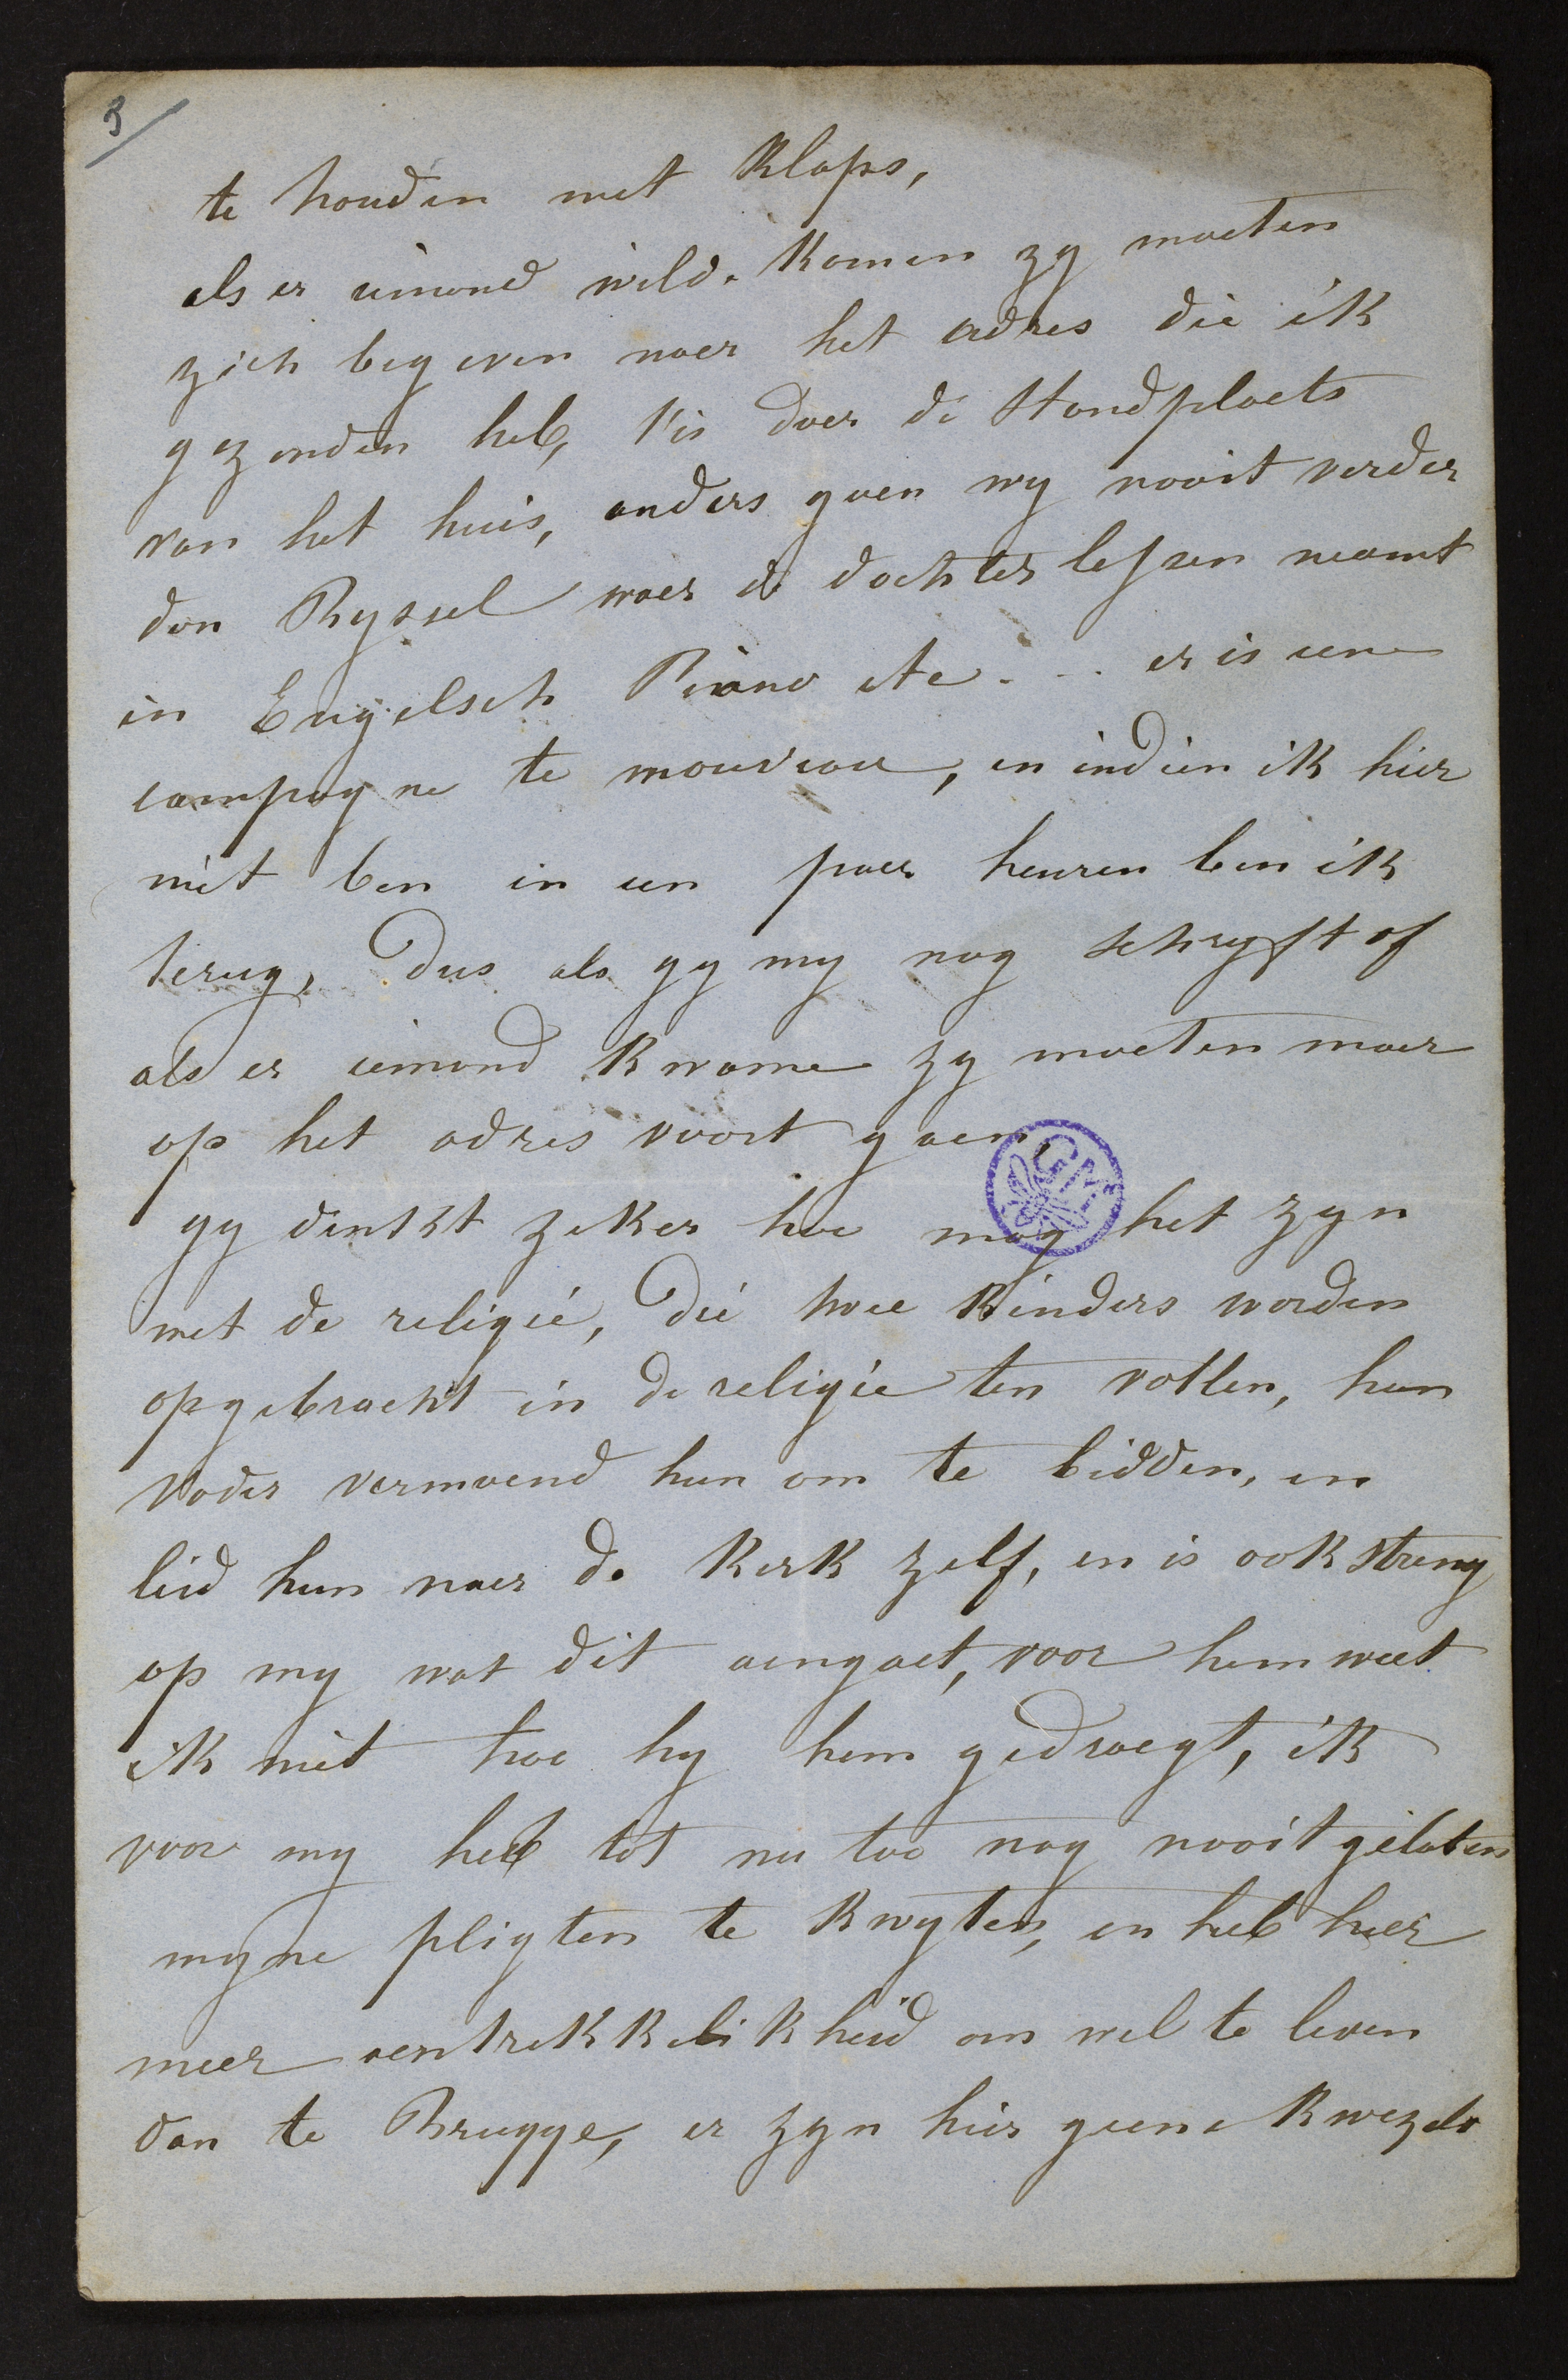 3/
te houden met klaps,
als er iemand wild komen zy moeten
zich begeven naer het adres die ik
gezonden heb, t'is daer de standplaets
van het huis, anders gaen wy nooit verder
dan Ryssel waer de dochter lessen neamt
in Engelsch Piano etc... er is eene
campagne te mouveau, en indien ik hier
niet ben in een paer heuren ben ik
terug, dus als gy my nog schryft of
als er iemand kwame zy moeten maer
op het adres voort gaen,
gy denkt zeker hoe mag het zyn
met de religie, die twee kinders worden
opgebracht in de religie ten vollen, hun
vader vermaend hun om te bidden, en
leid hun naer de kerk zelf, en is ook streng
op my wat dit aengaet, voor hem weet
ik niet hoe hy hem gedraegt, ik
voor my heb tot nu toe nog nooit gelaten
myne pligten te kwyten, en heb hier
meer aentrekkelikheid om wel te leven
dan te Brugge, er zyn hier geene kwezels
GM